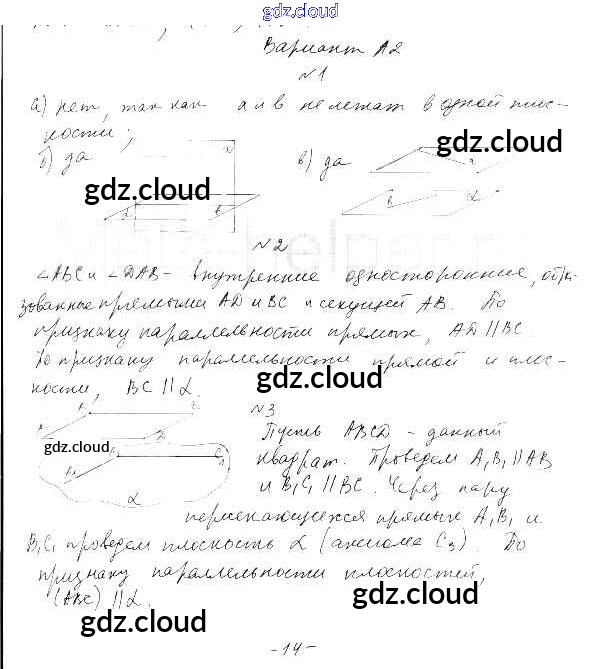 gdz.cloud
Вариант А2
N1
а) нет, так как a и в не лежат в одной плос-
кости;
б) да
в) да
gdz.cloud
gdz.cloud
N2
∠ABC и ∠DAB - внутренние односторонние, обра-
зованные прямыми AD и BC и секущей AB. По
признаку параллельности прямых, AD || BC.
По признаку параллельности прямой и плос-
кости, BC || α.
gdz.cloud
N3
gdz.cloud
Пусть ABCD - данный
квадрат. Проведем A₁B₁ || AB
и B₁C₁ || BC. Через пару
α
пересекающихся прямых A₁B₁ и
B₁C₁ проведем плоскость α (аксиома C₃). По
признаку параллельности плоскостей,
(ABC) || α.
gdz.cloud
gdz.cloud
-14-